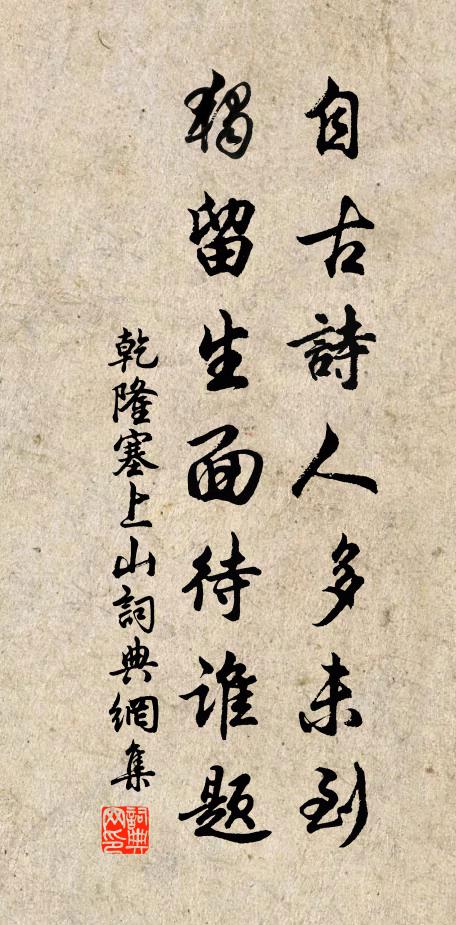 自古詩人多未到
獨留生面待誰題
乾隆塞上山詞典網集
詞典網印